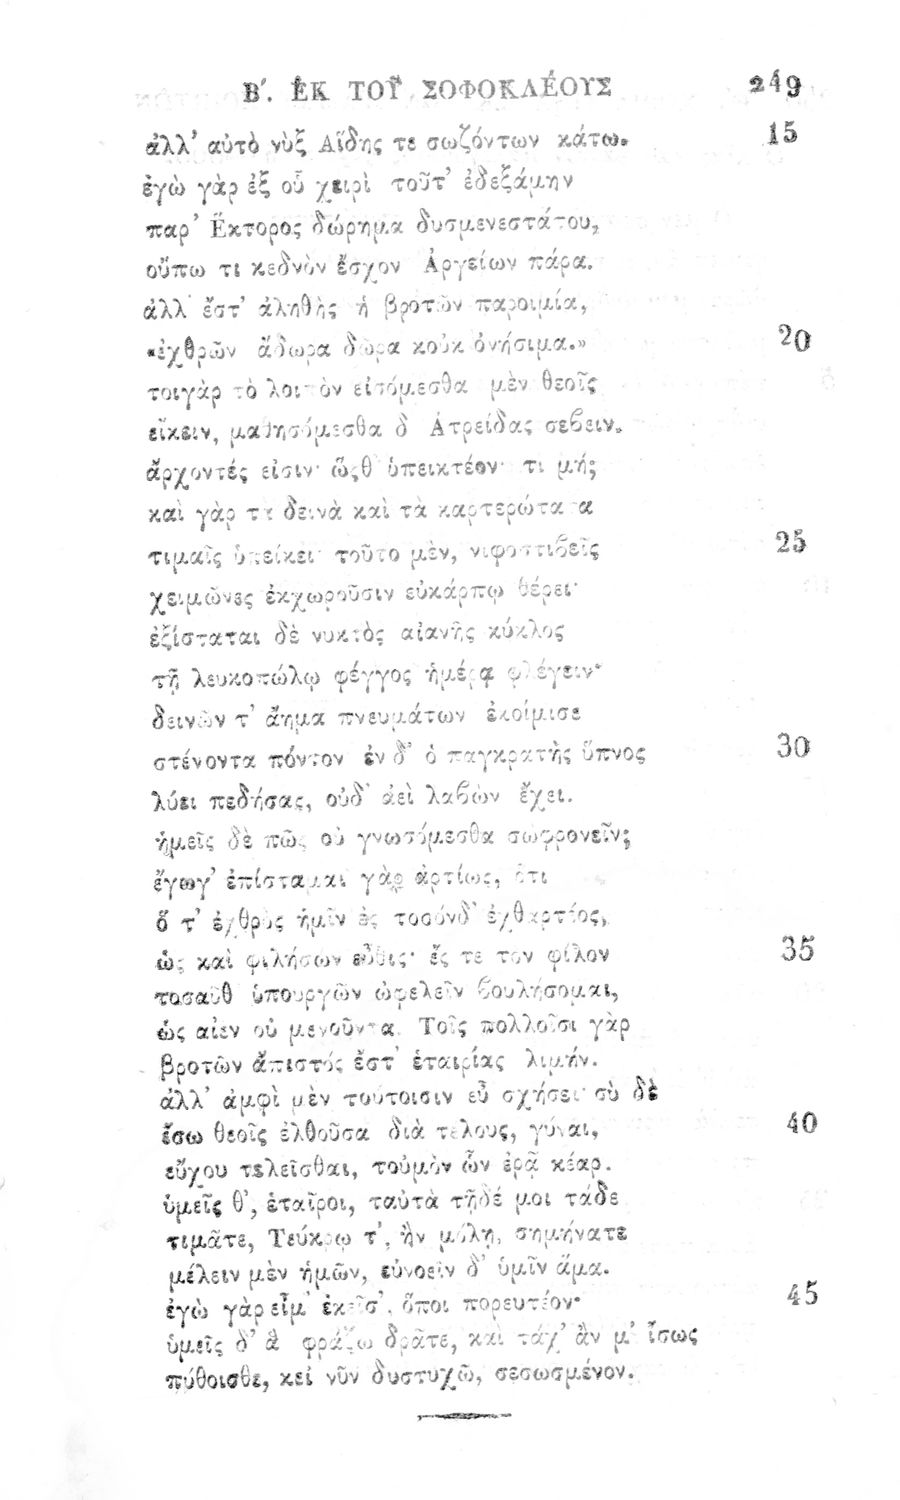 Β΄. ἘΚ ΤΟΥ͂ ΣΟΦΟΚΛΈΟΥΣ 249
ἀλλ' αὐτὸ νὺξ Αἵδης τε σωζόντων κάτω. 15
ἐγὼ γὰρ ἐξ οὗ χειρὶ τοῦτ' ἐδεξάμην
παρ' Ἕκτορος δώρημα δυσμενεστάτου,
οὔπω τι κεδνὸν ἔσχον Ἀργείων πάρα.
ἀλλ' ἔστ' ἀληθὴς ἡ βροτῶν παροιμία,
«ἐχθρῶν ἄδωρα δῶρα κοὐκ ὀνήσιμα.» 20
τοιγὰρ τὸ λοιπὸν εἰσόμεσθα μὲν θεοῖς
εἴκειν, μαθησόμεσθα δ' Ἀτρείδας σέβειν.
ἄρχοντές εἰσιν· ὥςθ' ὑπεικτέον· τι μή;
καὶ γὰρ τὰ δεινὰ καὶ τὰ καρτερώτατα
τιμαῖς ὑπείκει· τοῦτο μὲν, νιφοστιβεῖς 25
χειμῶνες ἐκχωροῦσιν εὐκάρπῳ θέρει·
ἐξίσταται δὲ νυκτὸς αἰανῆς κύκλος
τῇ λευκοπώλῳ φέγγος ἡμέρᾳ φλέγειν·
δεινῶν τ' ἄημα πνευμάτων ἐκοίμισε
στένοντα πόντον· ἐν δ' ὁ παγκρατὴς ὕπνος 30
λύει πεδήσας, οὐδ' ἀεὶ λαβὼν ἔχει.
ἡμεῖς δὲ πῶς οὐ γνωσόμεσθα σωφρονεῖν;
ἔγωγ' ἐπίσταμαι γὰρ ἀρτίως, ὅτι
ὅ τ' ἐχθρὸς ἡμῖν ἐς τοσόνδ' ἐχθαρτέος,
ὡς καὶ φιλήσων αὖθις· ἔς τε τὸν φίλον 35
τοσαῦθ' ὑπουργῶν ὠφελεῖν βουλήσομαι,
ὡς αἰὲν οὐ μενοῦντα. Τοῖς πολλοῖσι γὰρ
βροτῶν ἄπιστός ἐστ' ἑταιρίας λιμήν.
ἀλλ' ἀμφὶ μὲν τούτοισιν εὖ σχήσει· σὺ δὲ
ἔσω θεοῖς ἐλθοῦσα διὰ τέλους, γύναι, 40
εὔχου τελεῖσθαι, τοὐμὸν ὧν ἐρᾷ κέαρ.
ὑμεῖς θ', ἑταῖροι, ταὐτὰ τῇδέ μοι τάδε
τιμᾶτε, Τεύκρῳ τ', ἢν μόλῃ, σημήνατε
μέλειν μὲν ἡμῶν, εὐνοεῖν δ' ὑμῖν ἅμα.
ἐγὼ γὰρ εἶμ' ἐκεῖσ', ὅποι πορευτέον· 45
ὑμεῖς δ' ἃ φράζω δρᾶτε, καὶ τάχ' ἂν μ' ἴσως
πύθοισθε, κεἰ νῦν δυστυχῶ, σεσωσμένον.